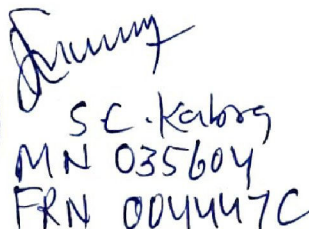 S.C. Kabra
MN 035604
FRN 004447C